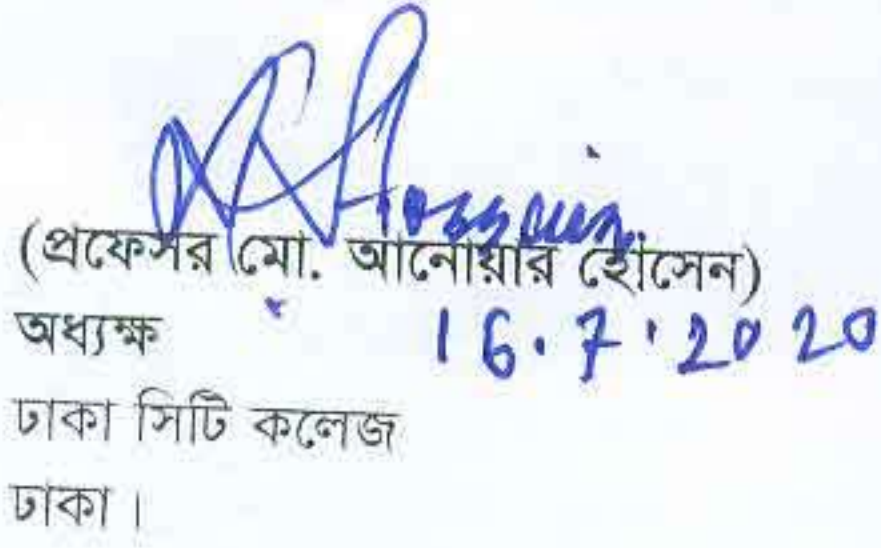 Hossain
(প্রফেসর মো. আনোয়ার হোসেন)
অধ্যক্ষ 16.7.2020
ঢাকা সিটি কলেজ
ঢাকা।